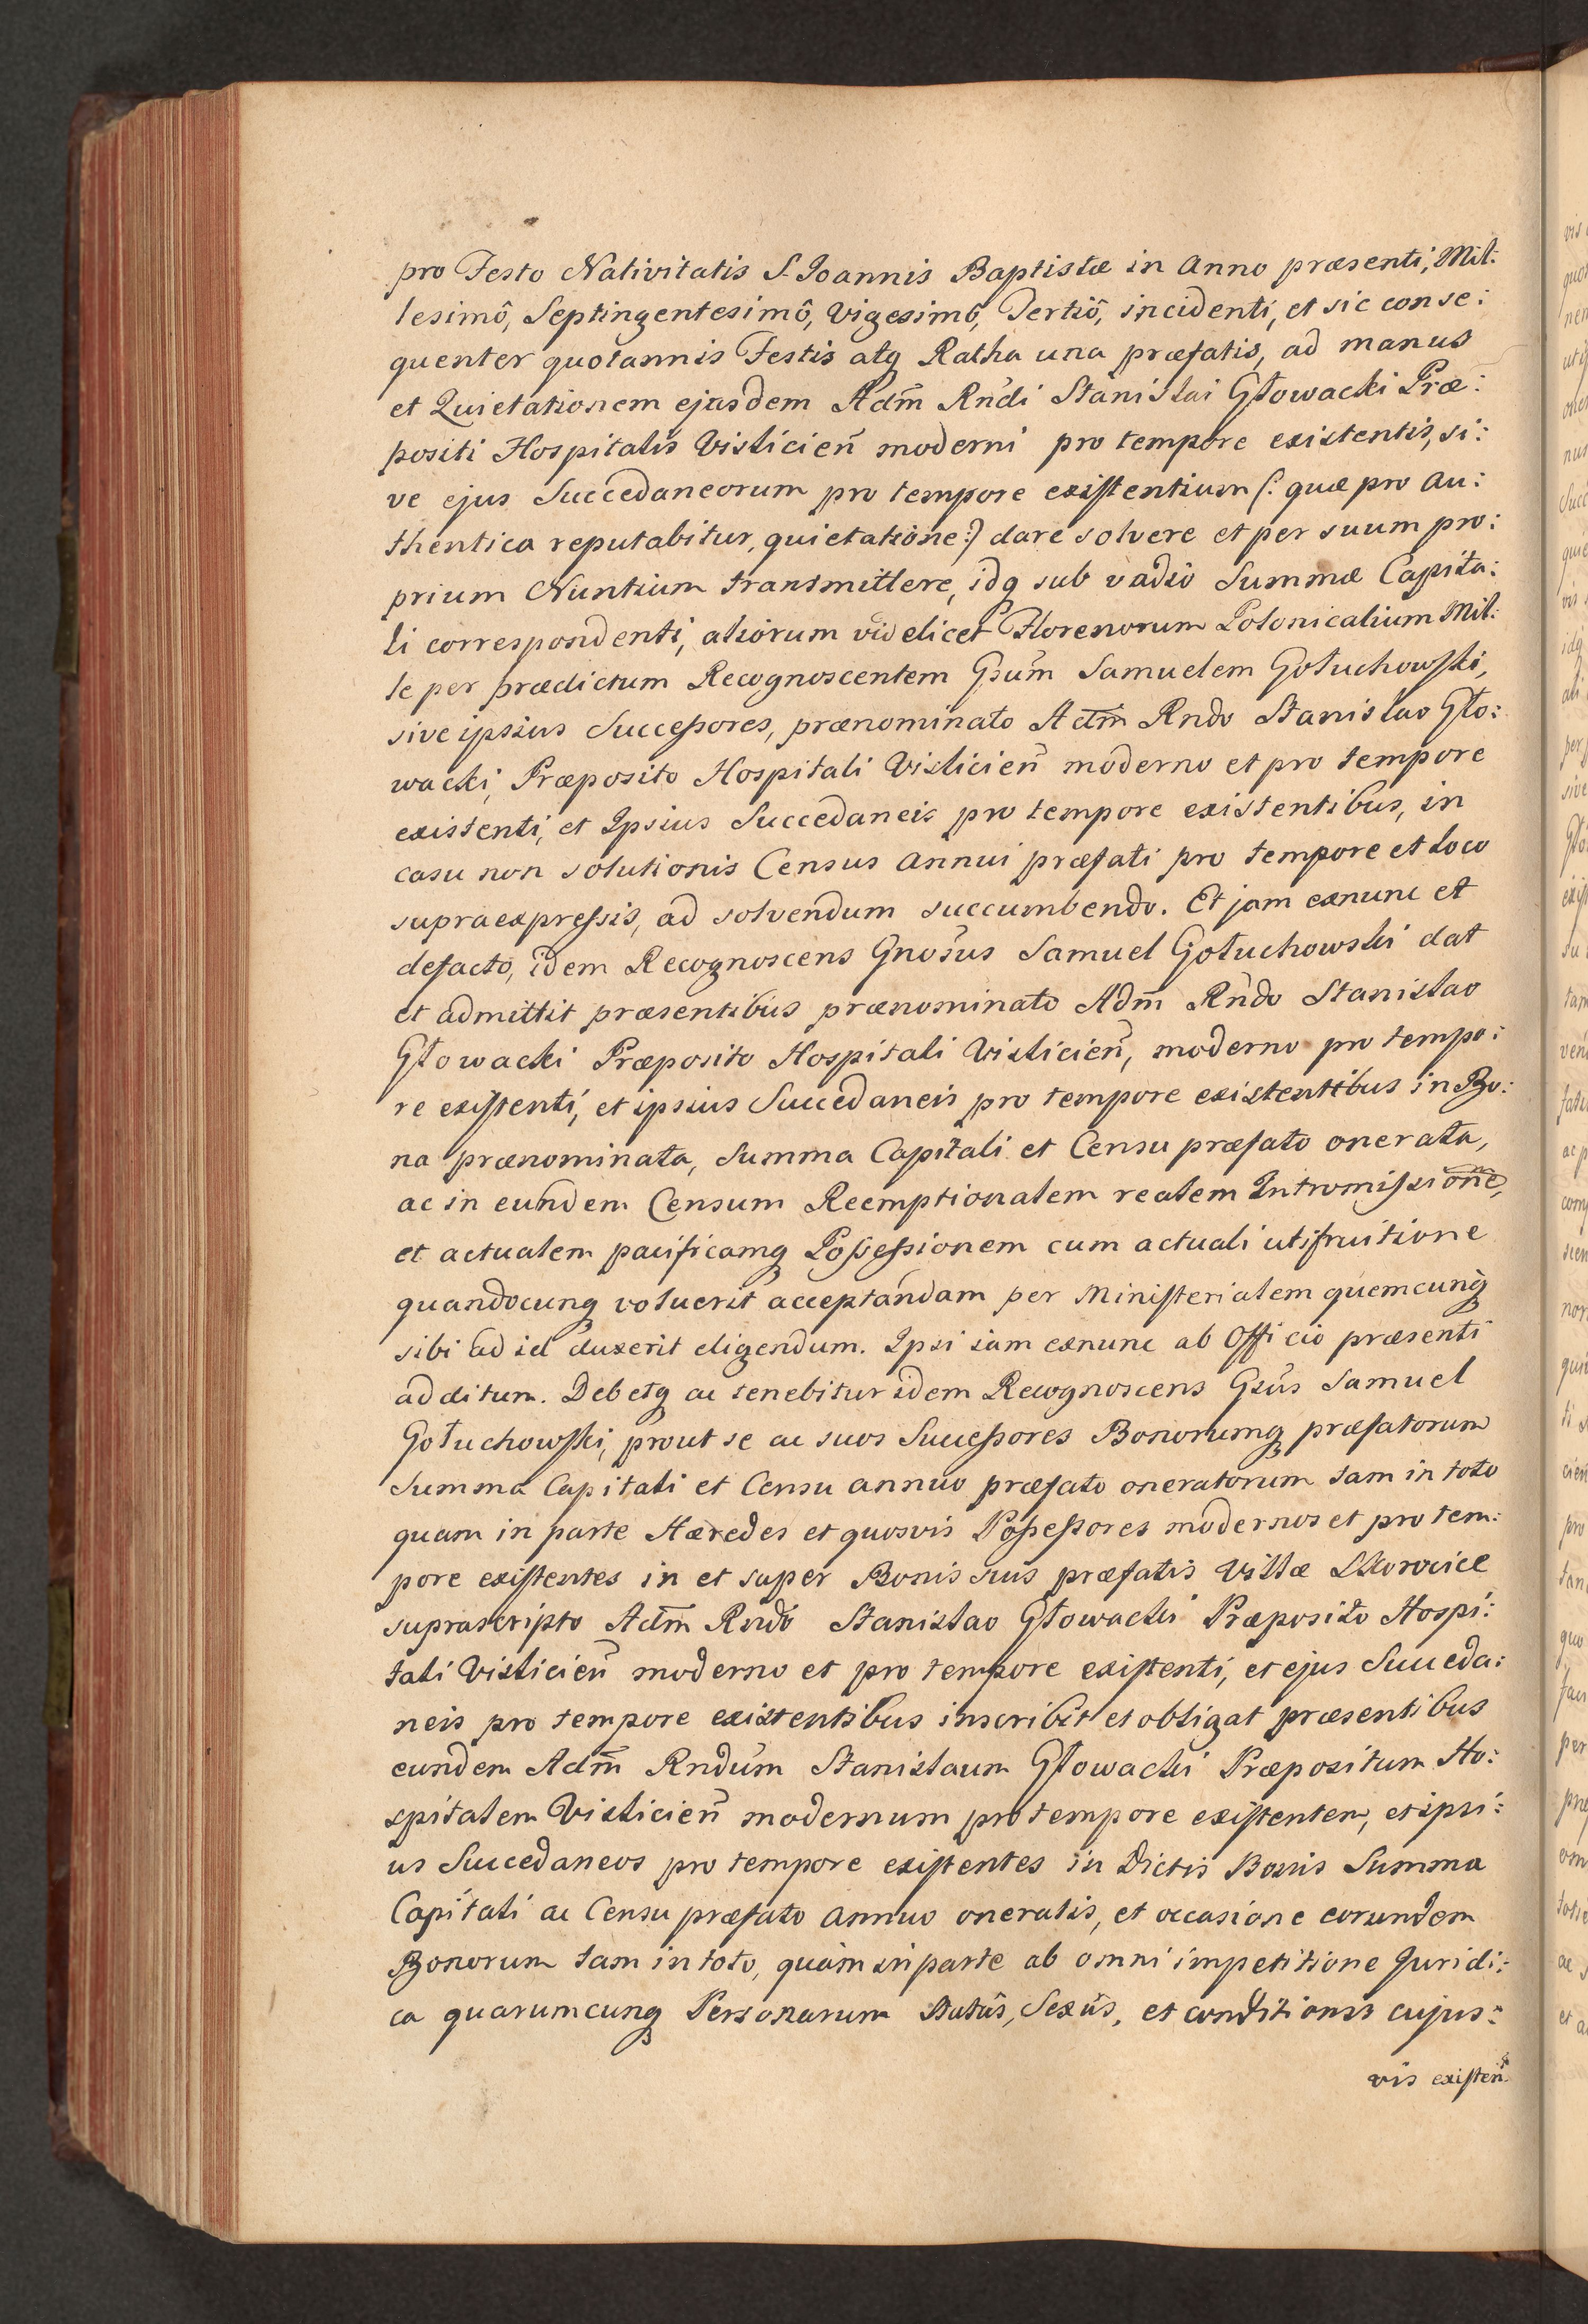 pro Festo Nativitatis S. Joannis Baptistæ in Anno præsenti, Mil:
lesimô, Septingentesimô, Vigesimô, Tertiô, incidenti, et sic conse:
quenter quotannis Festis atq Ratha una præfatis, ad manus
et Quietationem ejusdem Adm̄ Rndi Stanislai Głowacki Præ:
positi Hospitalis Vislicień moderni pro tempore existentis, si:
ve ejus Succedaneorum pro tempore existentium (: quæ pro Au:
thentica reputabitur, quietatione :) dare solvere et per suum pro:
prium Nuntium transmittere, idq sub vadio Summæ Capita:
li correspondenti, aliorum videlicet Florenorum Polonicalium Mil:
le per prædictum Recognoscentem Gsum Samuelem Gołuchowski,
sive ipsius Successores, prænominato Adm̄ Rndo Stanislao Gło:
wacki, Præposito Hospitali Vislicień moderno et pro tempore
existenti, et Ipsius Succedaneis pro tempore existentibus, in
casu non solutionis Census annui præfati pro tempore et loco
supraexpressis, ad solvendum succumbendo. Et jam exnunc et
defacto, idem Recognoscens Gnosus Samuel Gołuchowski dat
et admittit præsentibus prænominato Adm̄ Rndo Stanislao
Głowacki Præposito Hospitali Vislicień, moderno pro tempo:
re existenti, et ipsius Succedaneis pro tempore existentibus in Bo:
na prænominata, Summa Capitali et Censu præfato onerata,
ac in eundem Censum Reemptionalem realem Intromissionē,
et actualem pacificamq Possessionem cum actuali utifruitione
quandocunq voluerit acceptandam per Ministerialem quemcunq
sibi ad id duxerit eligendum. Ipsi iam exnunc ab Officio præsenti
additum. Debetq ac tenebitur idem Recognoscens Gsus Samuel
Gołuchowski, prout se ac suos Successores Bonorumq præfatorum
Summa Capitali et Censu annuo præfato oneratorum tam in toto
quam in parte Hæredes et quosvis Possessores modernos et pro tem:
pore existentes in et super Bonis suis præfatis Villæ Skorocice
suprascripto Adm̄ Rndo Stanislao Głowacki Præposito Hospi:
tali Vislicień moderno et pro tempore existenti, et ejus Succeda:
neis pro tempore existentibus inscribit et obligat præsentibus
eundem Adm̄ Rndum Stanislaum Głowacki Præpositum Ho:
spitalem Vislicień modernum pro tempore existentem, et ipsi:
us Succedaneos pro tempore existentes in Dictis Bonis Summa
Capitali ac Censu præfato annuo oneratis, et occasione eorundem
Bonorum tam in toto, quàm in parte ab omni impetitione Juridi:
ca quarumcunq Personarum Statûs, Sexûs, et conditionis cujus:
vis existen